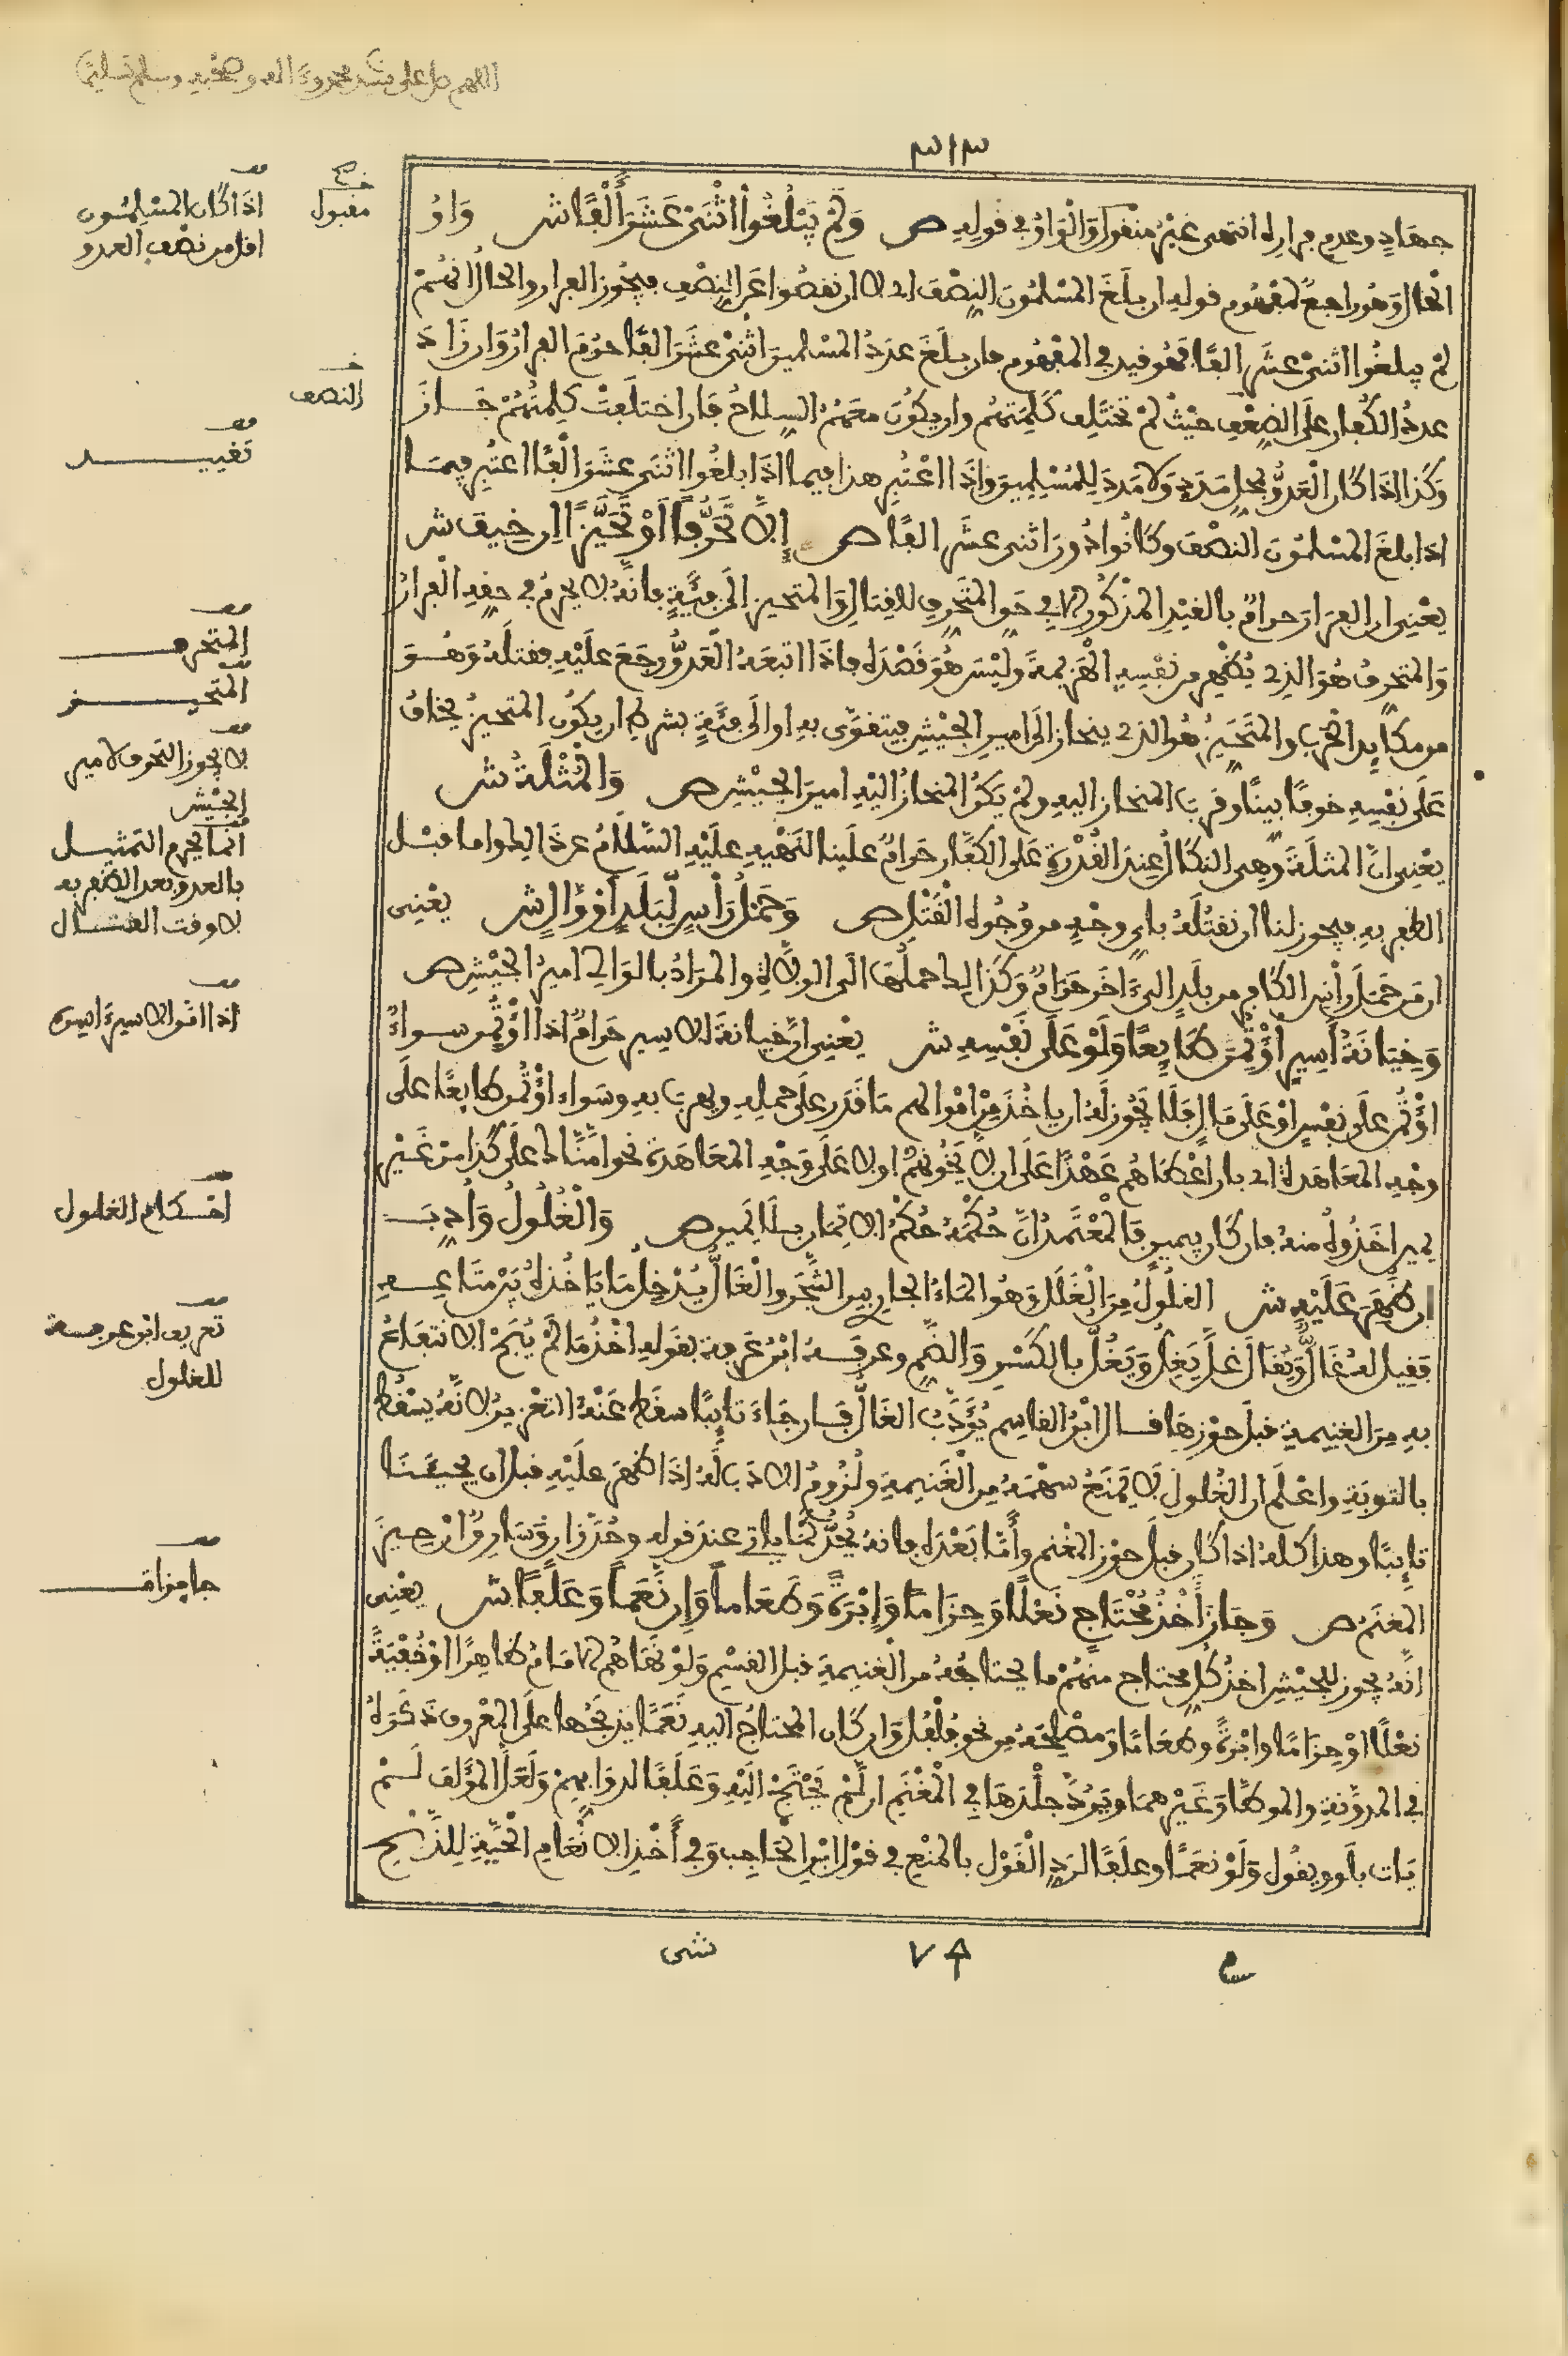 اللهم صل على سيدنا محمد وءاله وصحبه وسلم تسليما
٣١٣
جهاد وعدم فراره انتهى غير منقول والواو في قوله ص وَلَمْ يَبْلُغُوا اثْنَيْ عَشَرَ أَلْفًا ش واو
الحال وهو راجع لمفهوم قوله ان بلغ المسلمون النصف اي لا ان نقصوا عن النصف فيجوز الفرار والحال انهم
لم يبلغوا اثني عشر الفا فهو قيد في المفهوم فان بلغ عدد المسلمين اثني عشر الفا حرم الفرار وان زاد
عدد الكفار على الضعف حيث لم تختلف كلمتهم وان يكون معهم السلاح فان اختلفت كلمتهم جاز
وكذا اذا كان العدو بمحل مدد ولا مدد للمسلمين واذا اعتبر هذا فيما اذا بلغوا اثني عشر الفا اعتبر فيما
اذا بلغ المسلمون النصف وكانوا دون اثني عشر الفا ص إِلَّا تَحَرُّفًا أَوْ تَحَيُّزًا إِنْ خِيفَ ش
يعني ان الفرار حرام بالقيد المذكور الا في حق المتحرف للقتال والمتحيز الى فئة فانه لا يحرم في حقه الفرار
والمتحرف هو الذي يظهر من نفسه الهزيمة وليس هو قصده فاذا اتبعه العدو رجع عليه فقتله وهو
من مكايد الحرب والمتحيز هو الذي ينحاز الى امير الجيش فيتقوى به او الى فئة بشرط ان يكون المتحيز يخاف
على نفسه خوفا بينا وقرب المنحاز اليه ولم يكن المنحاز اليه امير الجيش ص وَالْمُثْلَةُ ش
يعني ان المثلة وهي النكال عند القدرة على الكفار حرام علينا لنهيه عليه السلام عن ذالك واما قبل
الظفر به فيجوز لنا ان نقتله باي وجه من وجوه القتل ص وَحَمْلُ رَأْسٍ لِبَلَدٍ أَوْ وَالٍ ش يعني
ان من حمل راس الكافر من بلد الى ءاخر حرام وكذالك حملها الى الولاة والمراد بالوالي امير الجيش ص
وَخِيَانَةُ أَسِيرٍ اؤْتُمِنَ طَائِعًا وَلَوْ عَلَى نَفْسِهِ ش يعني ان خيانة الاسير حرام اذا اؤتمن سواء
اؤتمن على نفس او على مال فلا يجوز له ان ياخذ من اموالهم ما قدر على حمله ويهرب به وسواء اؤتمن طائعا على
وجه المعاهدة اي بان اعطاهم عهدا على ان لا يخونهم او لا على وجه المعاهدة نحو امناك على كذا من غير
يمين اخذوه منه فان كان يمين فالمعتمد ان حكمه حكم الائتمان بلا يمين ص وَالْغُلُولُ وَأُدِّبَ
إِنْ ظُهِرَ عَلَيْهِ ش الغلول من الغلل وهو الماء الجاري بين الشجر والغال يدخل ما ياخذه بين متاعه
فقيل له غال ويقال غل يغل ويغل بالكسر والضم وعرفه ابن عرفة بقوله اخذ ما لم يبح الانتفاع
به من الغنيمة قبل حوزها قال ابن القاسم يؤدب الغال فان جاء تائبا سقط عنه التعزير لانه يسقط
بالتوبة واعلم ان الغلول لا يمنع سهمه من الغنيمة ولزوم الادب له اذا ظهر عليه قبل ان يجيئنا
تائبا وهذا كله اذا كان قبل حوز المغنم وأما بعده فانه يحد كما ياتي عند قوله وحد زان وسارق ان حيز
المغنم ص وَجَازَ أَخْذُ مُحْتَاجٍ نَعْلًا وَحِزَامًا وَإِبْرَةً وَطَعَامًا وَإِنْ نَعَمًا وَعَلَفًا ش يعني
انه يجوز للجيش اخذ كل محتاج منهم ما يحتاجه من الغنيمة قبل القسم ولو نهاهم الامام ظاهرا او خفية
نعلا او حزاما وابرة وطعاما ومصلحه من نحو فلفل وان كان المحتاج اليه نعما يذبحها على المعروف ذكره
في المدونة والموطا وغيرهما ويرد جلدها في المغنم ان لم يحتج اليه وعلفا لدوابهم ولعل المؤلف لم
يات بلو ويقول ولو نعما وعلفا لرد القول بالمنع في قول ابن الحاجب وفي أخذ الانعام الحية للذبح
ع ٧٩ شى
مقبول
النصف
اذا كان المسلمون
اقل من نصف العدو
تقييد
المتحرف
المتحيز
لا يجوز التحرف لامير
الجيش
انما يحرم التمثيل
بالعدو بعد الظفر به
لا وقت القتال
اذا ائتمن الاسير امين
احكام الغلول
تعريف ابن عرفة
للغلول